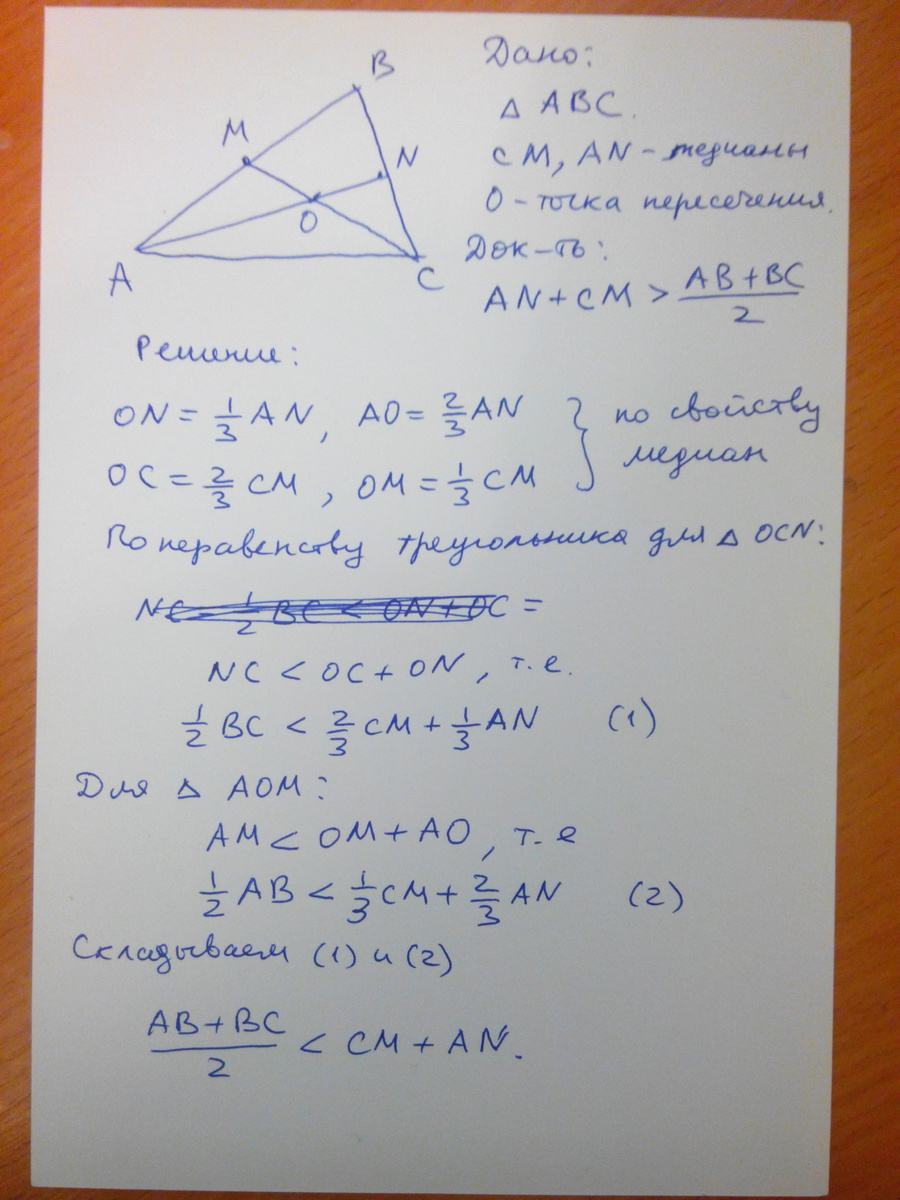 B
M
N
O
A
C
Дано:
△ ABC.
CM, AN - медианы
O - точка пересечения.
Док-ть:
AN + CM > (AB + BC)/2
Решение:
ON = 1/3 AN, AO = 2/3 AN
OC = 2/3 CM, OM = 1/3 CM } по свойству медиан
По неравенству треугольника для △ OCN:
NC = 1/2 BC < ON + OC =
NC < OC + ON, т.е.
1/2 BC < 2/3 CM + 1/3 AN (1)
Для △ AOM:
AM < OM + AO, т.е
1/2 AB < 1/3 CM + 2/3 AN (2)
Складываем (1) и (2)
(AB + BC)/2 < CM + AN.